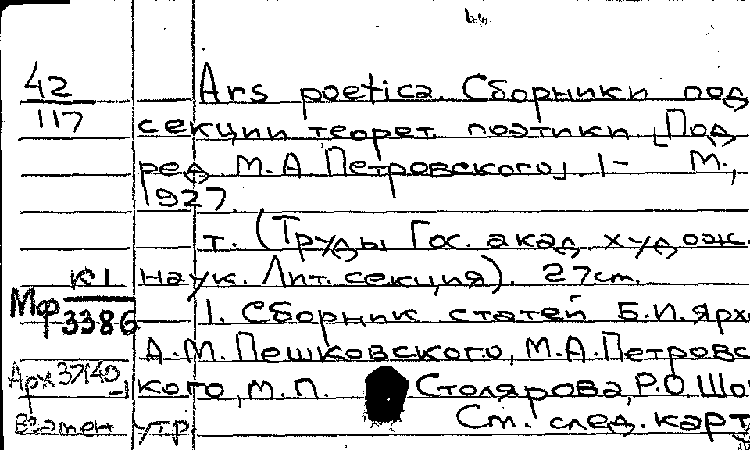 42 Ars poetica. Сборники под
117 секции теорет. поэтики [Под
ред. М.А Петровского]. 1- М.,
1927
т. (Труды Гос. акад. худож.
К1 наук. Лит. секция). 27 cm.
Мф 3386 1. Сборник статей Б.И. Ярх
А.М. Пешковского, М.А. Петровс
Арх 37140-1 кого, М.П. Столярова, Р.О. Шо
Взамен утр. См. след. карт